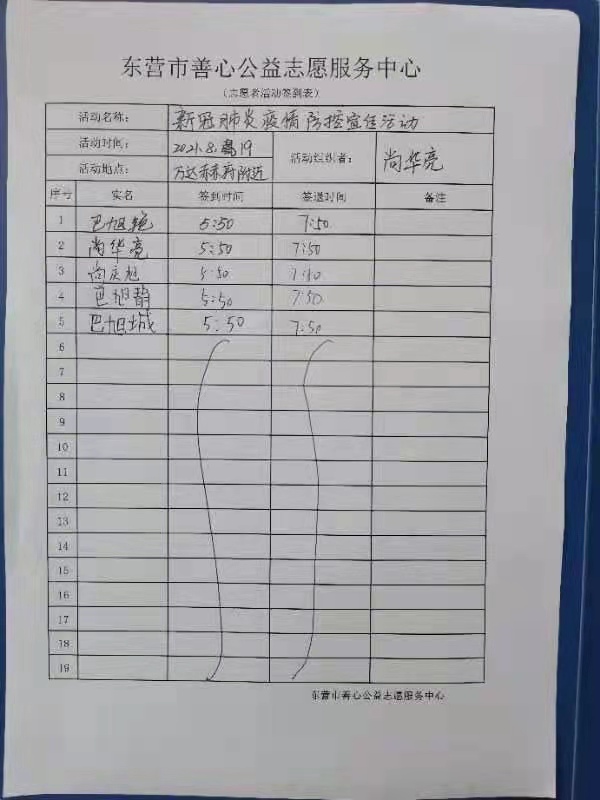 东营市善心公益志愿服务中心
（志愿者活动签到表）
活动名称： 新冠肺炎疫情防控宣传活动
活动时间： 2021.8.19 活动组织者： 尚华亮
活动地点： 万达 府附近
序号 实名 签到时间 签退时间 备注
1 巴旭艳 5:50 7:50
2 尚华亮 5:50 7:50
3 尚庆旭 5:50
4 巴旭静 5:50 7:50
5 巴旭城 5:50 7:50
6
7
8
9
10
11
12
13
14
15
16
17
18
19
东营市善心公益志愿服务中心